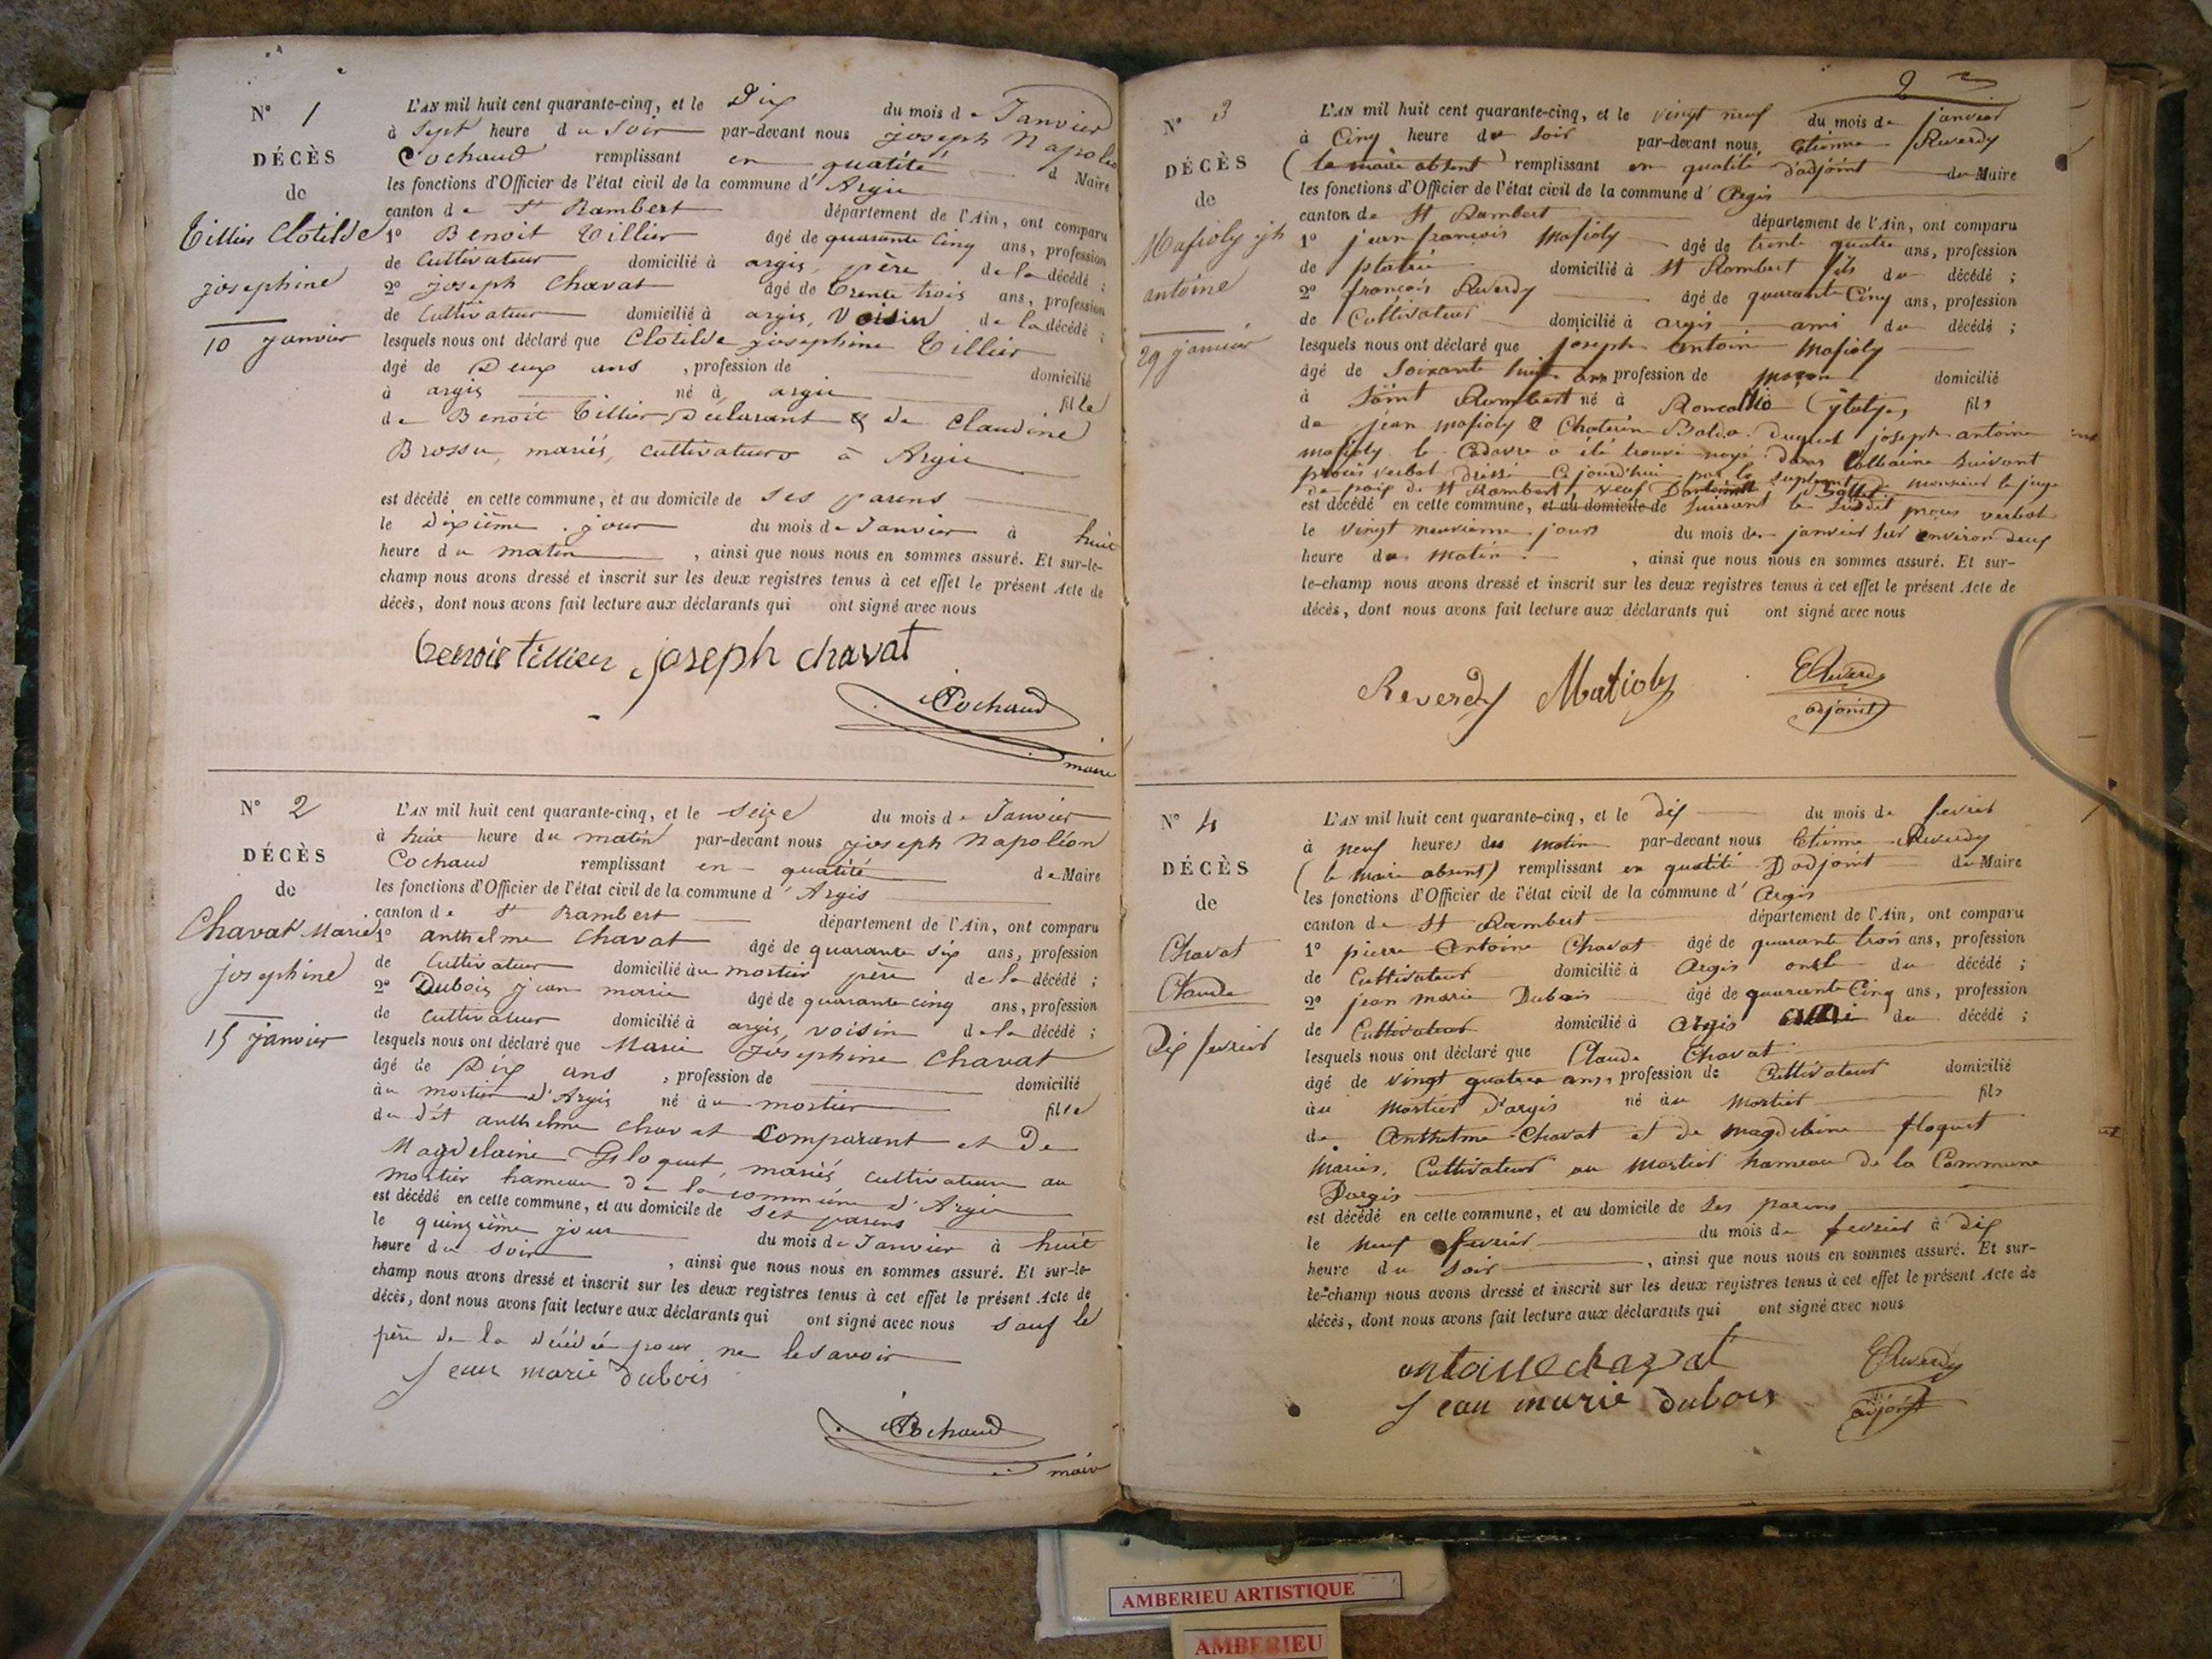 N° 1
DÉCÈS
de
Tillier Clotilde
josephine
10 janvier
L'AN mil huit cent quarante-cinq, et le Dix du mois de Janvier
à Sept heure du Soir par-devant nous joseph Napoléo
Cochaud remplissant en qualité d Maire
les fonctions d'Officier de l'état civil de la commune d'Argis
canton de St Rambert département de l'Ain, ont comparu
1° Benoit Tillier âgé de quarante cinq ans, profession
de Cultivateur domicilié à argis, père de la décédé ;
2° joseph Chavat âgé de Trente trois ans, profession
de Cultivateur domicilié à argis, Voisin de la décédé ;
lesquels nous ont déclaré que Clotilde josephine Tillier
âgé de Deux ans , profession de domicilié
à argis né à argis fille
de Benoit Tillier Déclarant & de Claudine
Brossu, mariés, cultivateurs à Argis
est décédé en cette commune, et au domicile de ses parens
le Dixième jour du mois de Janvier à huit
heure du matin , ainsi que nous nous en sommes assuré. Et sur-le-
champ nous avons dressé et inscrit sur les deux registres tenus à cet effet le présent Acte de
décès, dont nous avons fait lecture aux déclarants qui ont signé avec nous
benoit tillier joseph chavat
Cochaud
maire
N° 2
DÉCÈS
de
Chavat Marie
josephine
15 janvier
L'AN mil huit cent quarante-cinq, et le seize du mois de Janvier
à huit heure du matin par-devant nous joseph Napoléon
Cochaud remplissant en qualité de Maire
les fonctions d'Officier de l'état civil de la commune d'Argis
canton de St Rambert département de l'Ain, ont comparu
1° anthelme Chavat âgé de quarante six ans, profession
de Cultivateur domicilié àu mortier père de la décédé ;
2° Dubois jean marie âgé de quarante cinq ans, profession
de Cultivateur domicilié à argis, voisin de la décédé ;
lesquels nous ont déclaré que Marie Josephine Chavat
âgé de Dix ans , profession de domicilié
àu mortier d'Argis né àu mortier fille
du dit anthelme chavat Comparant et De
Magdelaine Floquet, mariés cultivateurs au
mortier hameau de la commune d'Argis
est décédé en cette commune, et au domicile de ses parens
le quinzième jour du mois de Janvier à huit
heure du soir , ainsi que nous nous en sommes assuré. Et sur-le-
champ nous avons dressé et inscrit sur les deux registres tenus à cet effet le présent Acte de
décès, dont nous avons fait lecture aux déclarants qui ont signé avec nous sauf le
père de la décédée pour ne le savoir
Jean marie dubois
Cochaud
maire
2
N° 3
DÉCÈS
de
Mafioly jh
antoine
29 janvier
L'AN mil huit cent quarante-cinq, et le vingt neuf du mois de janvier
à Cinq heure du soir par-devant nous Etienne Reverdy
(le maire absent) remplissant en qualité d'adjoint du Maire
les fonctions d'Officier de l'état civil de la commune d'Argis
canton de St Rambert département de l'Ain, ont comparu
1° jean françois Mafioly âgé de trente quatre ans, profession
de platrié domicilié à St Rambert fils du décédé ;
2° françois Reverdy âgé de quarante Cinq ans, profession
de Cultivateur domicilié à argis ami du décédé ;
lesquels nous ont déclaré que joseph antoine Mafioly
âgé de Soixante huit ans profession de maçon domicilié
à Saint Rambert né à Roncallio (ytalye) fils
de jean mafioly & Chaterin Balda. Duquel joseph antoine
mafioly le Cadavre a été trouvé noyé dans lalbarine suivant
procès verbal dréssé Ce jourd'hui par le supléant de monsieur le juge
de paix de St Rambert
est décédé en cette commune, et au domicile de suivant le susdit procès verbal
le vingt neuvième jours du mois de janvier sur environ deux
heure du matin , ainsi que nous nous en sommes assuré. Et sur-
le-champ nous avons dressé et inscrit sur les deux registres tenus à cet effet le présent Acte de
décès, dont nous avons fait lecture aux déclarants qui ont signé avec nous
Reverdy Matioly EReverdy
adjoint
N° 4
DÉCÈS
de
Chavat
Claude
Dix fevrier
L'AN mil huit cent quarante-cinq, et le dix du mois de fevrier
à neuf heures du matin par-devant nous Etienne Reverdy
(le maire absent) remplissant en qualité D'adjoint du Maire
les fonctions d'Officier de l'état civil de la commune d'Argis
canton de St Rambert département de l'Ain, ont comparu
1° pierre Antoine Chavat âgé de quarante trois ans, profession
de Cultivateur domicilié à Argis oncle du décédé ;
2° jean marie Dubois âgé de quarante Cinq ans, profession
de Cultivateur domicilié à Argis ami du décédé ;
lesquels nous ont déclaré que Claude Chavat
âgé de vingt quatre ans, profession de Cultivateur domicilié
àu Mortier d'argis né àu Mortier fils
de Anthelme Chavat et de magdeleine floquet
Mariés, Cultivateur au Mortier hameau de la Commune
D'argis
est décédé en cette commune, et au domicile de Ses parens
le neuf fevrier du mois de fevrier à dix
heure du soir , ainsi que nous nous en sommes assuré. Et sur-
le-champ nous avons dressé et inscrit sur les deux registres tenus à cet effet le présent Acte de
décès, dont nous avons fait lecture aux déclarants qui ont signé avec nous
antoine chavat EReverdy
Jean marie dubois adjoint
AMBERIEU ARTISTIQUE
AMBERIEU